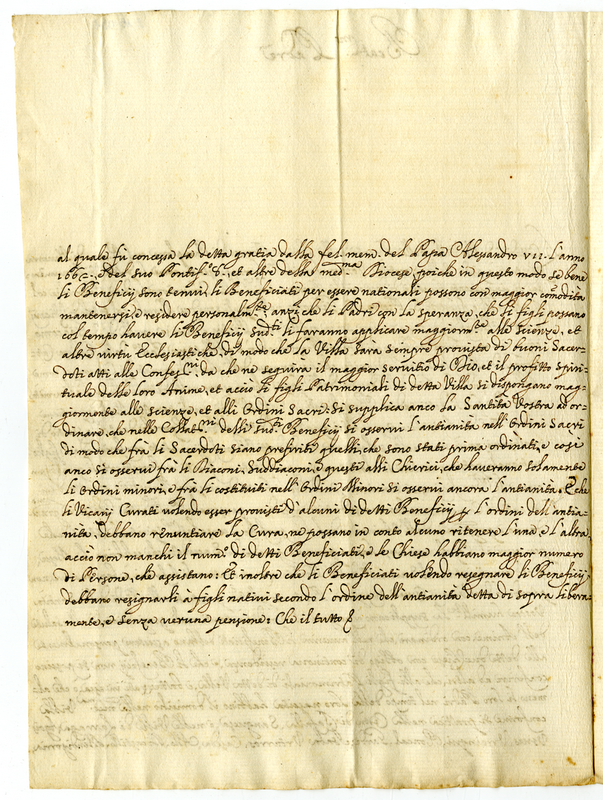 al quale fù concessa la detta gratia dalla fel. mem. del Papa Alessandro VII. l'anno
166 del suo Pontif. et altre della med.ma Diocese, poiche in questo modo se bene
li Beneficij sono tenui, li Beneficiati per essere nationali possono con maggior com̃odità
mantenersi, e residere personalm.te, anzi che li Padri con la speranza, che li figli possano
col tempo havere li Beneficij sud.ti li faranno applicare maggiorm.te alle scienze, et
altre virtù Ecclesiastiche, di modo che la Villa sarà sempre provista di buoni Sacer-
doti atti alle Confess.ni da che ne seguirà il maggior servitio di Dio, et il profitto Spiri-
tuale delle loro Anime, et acciò li figli Patrimoniali di detta Villa si dispongano mag-
giormente alle scienze, et alli Ordini Sacri: Si supplica anco la Santità Vostra ad or-
dinare, che nelle Collat.ni delli sud.ti Beneficij si osservi l'antianità nell'Ordini Sacri
di modo che frà li Sacerdoti siano preferiti quelli, che sono stati prima ordinati, e così
anco si osservi frà li Diaconi, Suddiaconi, e questi alli Chierici, che haveranno solamente
li Ordini minori, e frà li costituiti nell'Ordini Minori si osservi ancora l'antianità. E che
li Vicarij Curati volendo esser provisti d'alcuni di detti Beneficij p l'ordini dell'antia-
nità, debbano renuntiare la Cura, ne possano in conto alcuno ritenere l'una, e l'altra,
acciò non manchi il num.o di detti Beneficiati, e le Chiese habbiano maggior numero
di Persone, che assistano: Et inoltre che li Beneficiati volendo resegnare li Beneficij,
debbano resignarli à figli nativi secondo l'ordine dell'antianità detta di sopra libera-
mente, e senza veruna pensione: Che il tutto